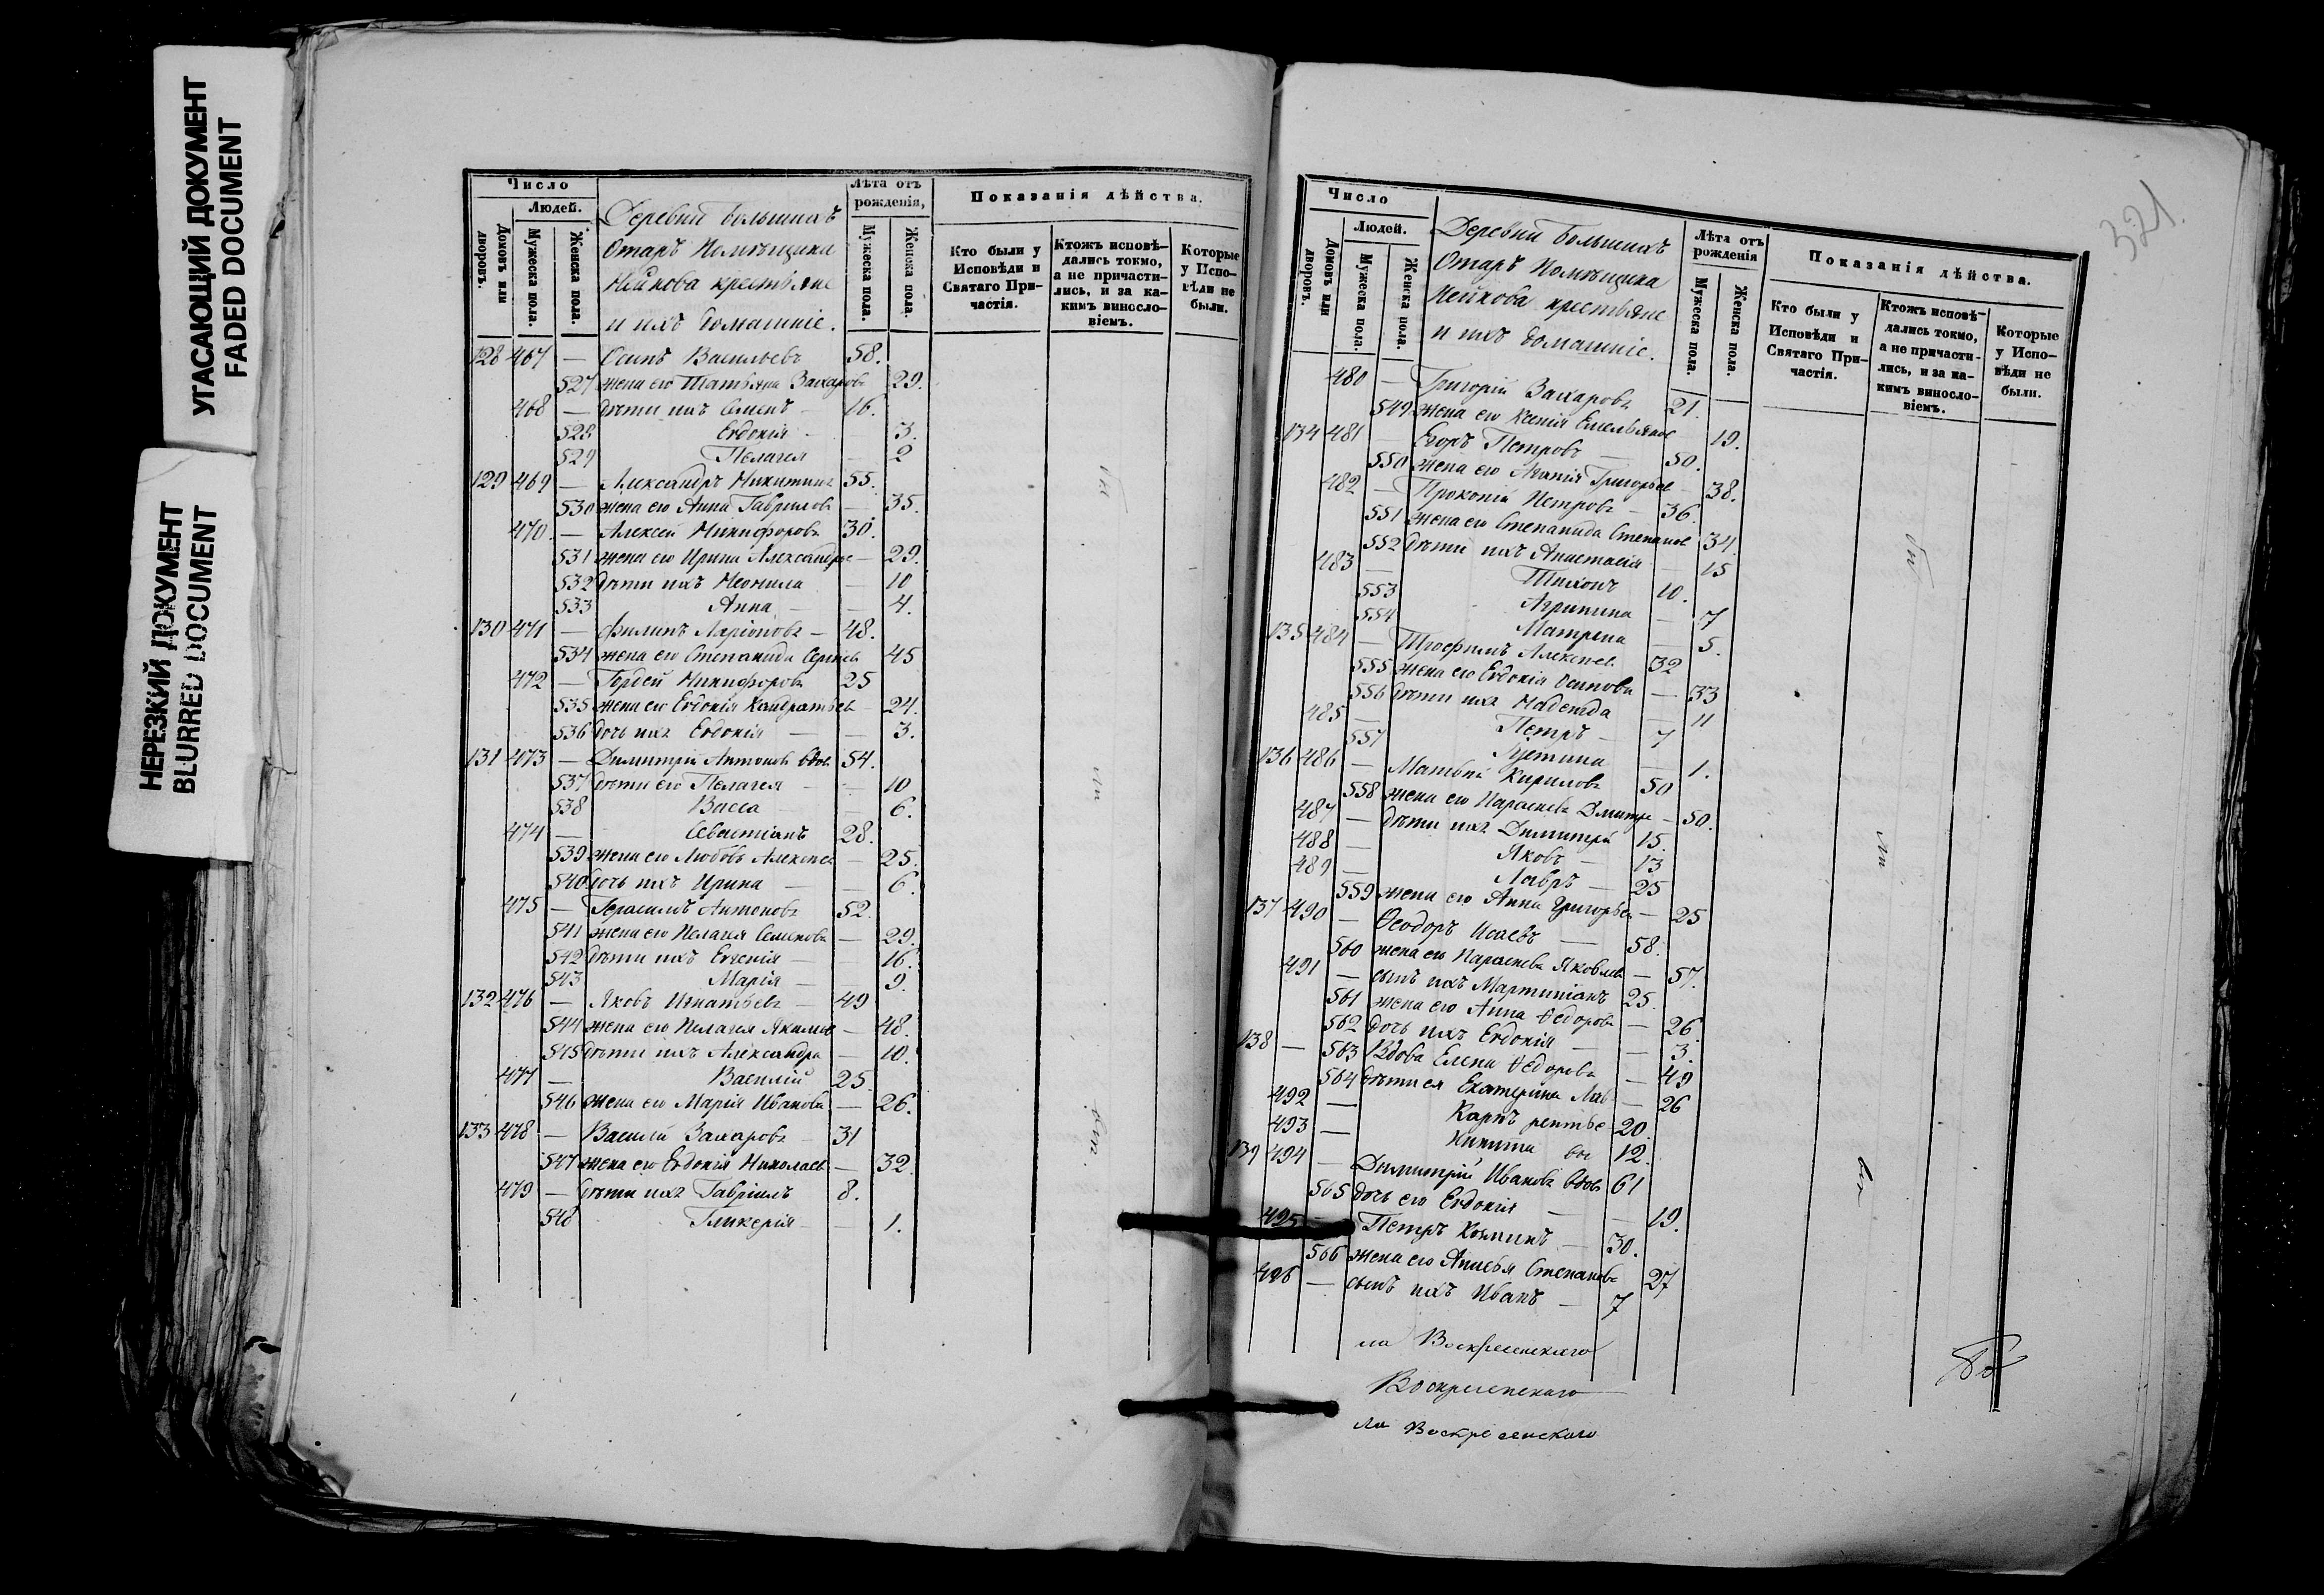 УГАСАЮЩИЙ ДОКУМЕНТ
FADED DOCUMENT
НЕРЕЗКИЙ ДОКУМЕНТ
BLURRED DOCUMENT
Число
Людей.
Домовъ или дворовъ.
Мужеска пола.
Женска пола.
Деревни большихъ
Отаръ Помѣщика
Нейкова крестьяне
и ихъ домашніе.
Лѣта отъ рожденія,
Мужеска пола.
Женска пола.
Показанія дѣйства.
Кто были у Исповѣди и Святаго Причастія.
Ктожъ исповѣдались токмо, а не причастились, и за какимъ винословіемъ.
Которые у Исповѣди не были.
128 467 — Осипъ Васильевъ 58.
527 жена его Татьяна Захаров 29.
468 — дѣти ихъ Семенъ — 16.
528 Евдокія — 3.
529 Пелагея — 2
129 469 — Александръ Никитинъ 55.
530 жена его Анна Гаврилов — 35.
470. — Алексей Никифоровъ 30.
531 жена его Ирина Александро — 29.
532 дѣти ихъ Неонила — 10
533 Анна — — 4.
130 471 — Филипъ Ларіоновъ — 48.
534 жена его Степанида Сергѣев 45
472 — Гордей Никифоровъ 25
535 жена его Евдокія Кондратьев — 24.
536 дочь ихъ Евдокія — — 3.
131 473 — Димитрій Антоновъ вдов 54.
537 дѣти его Пелагея — — 10
538 Васса — 6.
474 — Севастіанъ 28.
539 жена его Любовь Алексѣев — 25.
540 дочь ихъ Ирина — — 6.
475 — Герасимъ Антоновъ 52.
541 жена его Пелагея Семенова — 29.
542 дѣти ихъ Евгенія — — 16.
543 Марія — 9.
132 476 — Яковъ Игнатьевъ — 49
544 жена его Пелагея Якимов — 48.
545 дѣти ихъ Александра — 10.
477 — Василій 25.
546 жена его Марія Иванова — 26.
133 478 — Василій Захаровъ — 31
547 жена его Евдокія Николаев — 32.
479 — дѣти ихъ Гавріилъ 8.
548 Гликерія — — 1.
321.
Число
Людей.
Домовъ или дворовъ.
Мужеска пола.
Женска пола.
Деревни большихъ
Отаръ Помѣщика
Нейкова крестьяне
и ихъ домашніе.
Лѣта отъ рожденія
Мужеска пола.
Женска пола.
Показанія дѣйства.
Кто были у Исповѣди и Святаго Причастія.
Ктожъ исповѣдались токмо, а не причастились, и за какимъ винословіемъ.
Которые у Исповѣди не были.
480 — Григорій Захаровъ 21.
549 жена его Ксенія Емельянов 19.
134 481 — Егоръ Петровъ — 50.
550 жена его Агапія Григорьев 38.
482 — Прокопій Петровъ — 36.
551 жена его Степанида Степанов 34.
552 дѣти ихъ Анастасія — 15
483 — Тихонъ 10.
553 Агрипина — 7
554 Матрена — 5.
135 484 — Трофимъ Алексѣев 32
555 жена его Евдокія Осипова — 33
556 дѣти ихъ Надежда — 11
485 — Петръ — 7
557 Іустина — 1.
136 486 — Матвѣй Кириловъ 50
558 жена его Параскева Дмитре — 50.
487 — дѣти ихъ Димитрій 15.
488 — Яковъ — 13
489 — Лавръ — 25
559 жена его Анна Григорьев — 25
137 490 — Ѳеодоръ Исаевъ — 58.
560 жена его Параскева Яковлев — 57.
491 — сынъ ихъ Мартиніанъ 25.
561 жена его Анна Ѳедорова — 26
562 дочь ихъ Евдокія — — 3.
138 — 563 Вдова Елена Ѳедорова — 49
564 дѣти ея Екатерина Лав — 26
492 — Карпъ рентье 20.
493 — Никита вы 12.
139 494 — Димитрій Ивановъ вдов 61
565 дочь его Евдокія — — 19.
495 — Петръ Козминъ — 30.
566 жена его Анисья Степанова 27
496 — сынъ ихъ Иванъ — 7
на Воскресенскаго
Воскресенскаго
ла Воскресенскаго